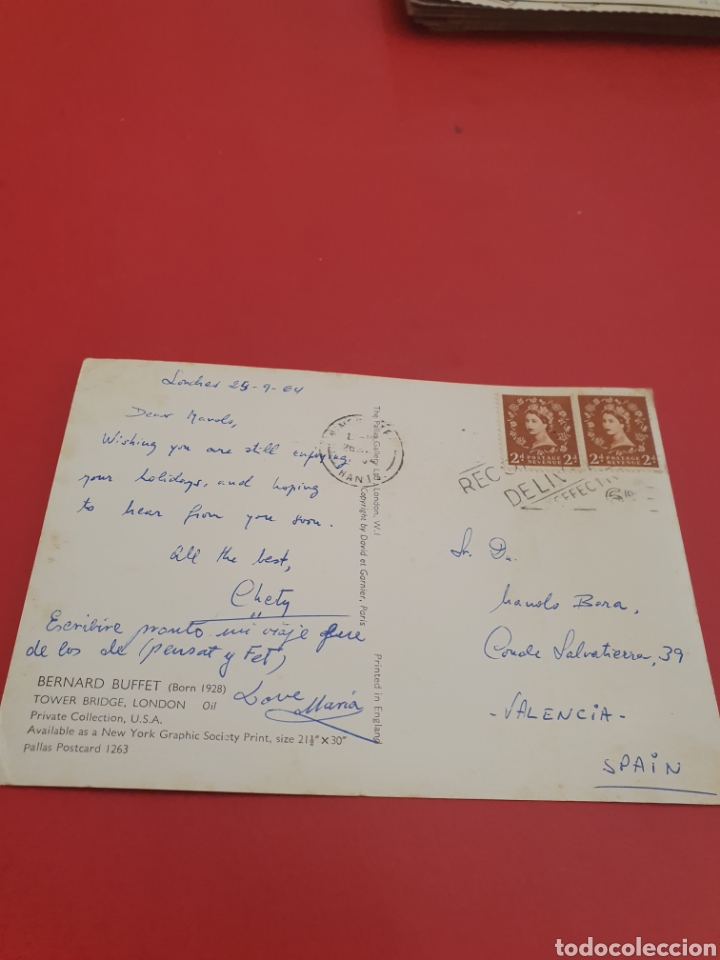 Londres 29-9-64
Dear Manolo,
Wishing you are still enjoying
your holidays, and hoping
to hear from you soon.
All the best,
Chety
Escribire pronto mi viaje fue
de los de (pensat y Fet)
Love María
BERNARD BUFFET (Born 1928)
TOWER BRIDGE, LONDON Oil
Private Collection, U.S.A.
Available as a New York Graphic Society Print, size 21½" X 30"
Pallas Postcard 1263
The Pallas Gallery Ltd London, W.1
Copyright by David et Garnier, Paris
Printed in England
HANTS
REC
DELIV
EFFECTIV
2d POSTAGE REVENUE 2d
2d POSTAGE REVENUE 2d
Sr. Dn.
Manolo Bora,
Conde Salvatierra, 39
- VALENCIA -
SPAIN
todocoleccion